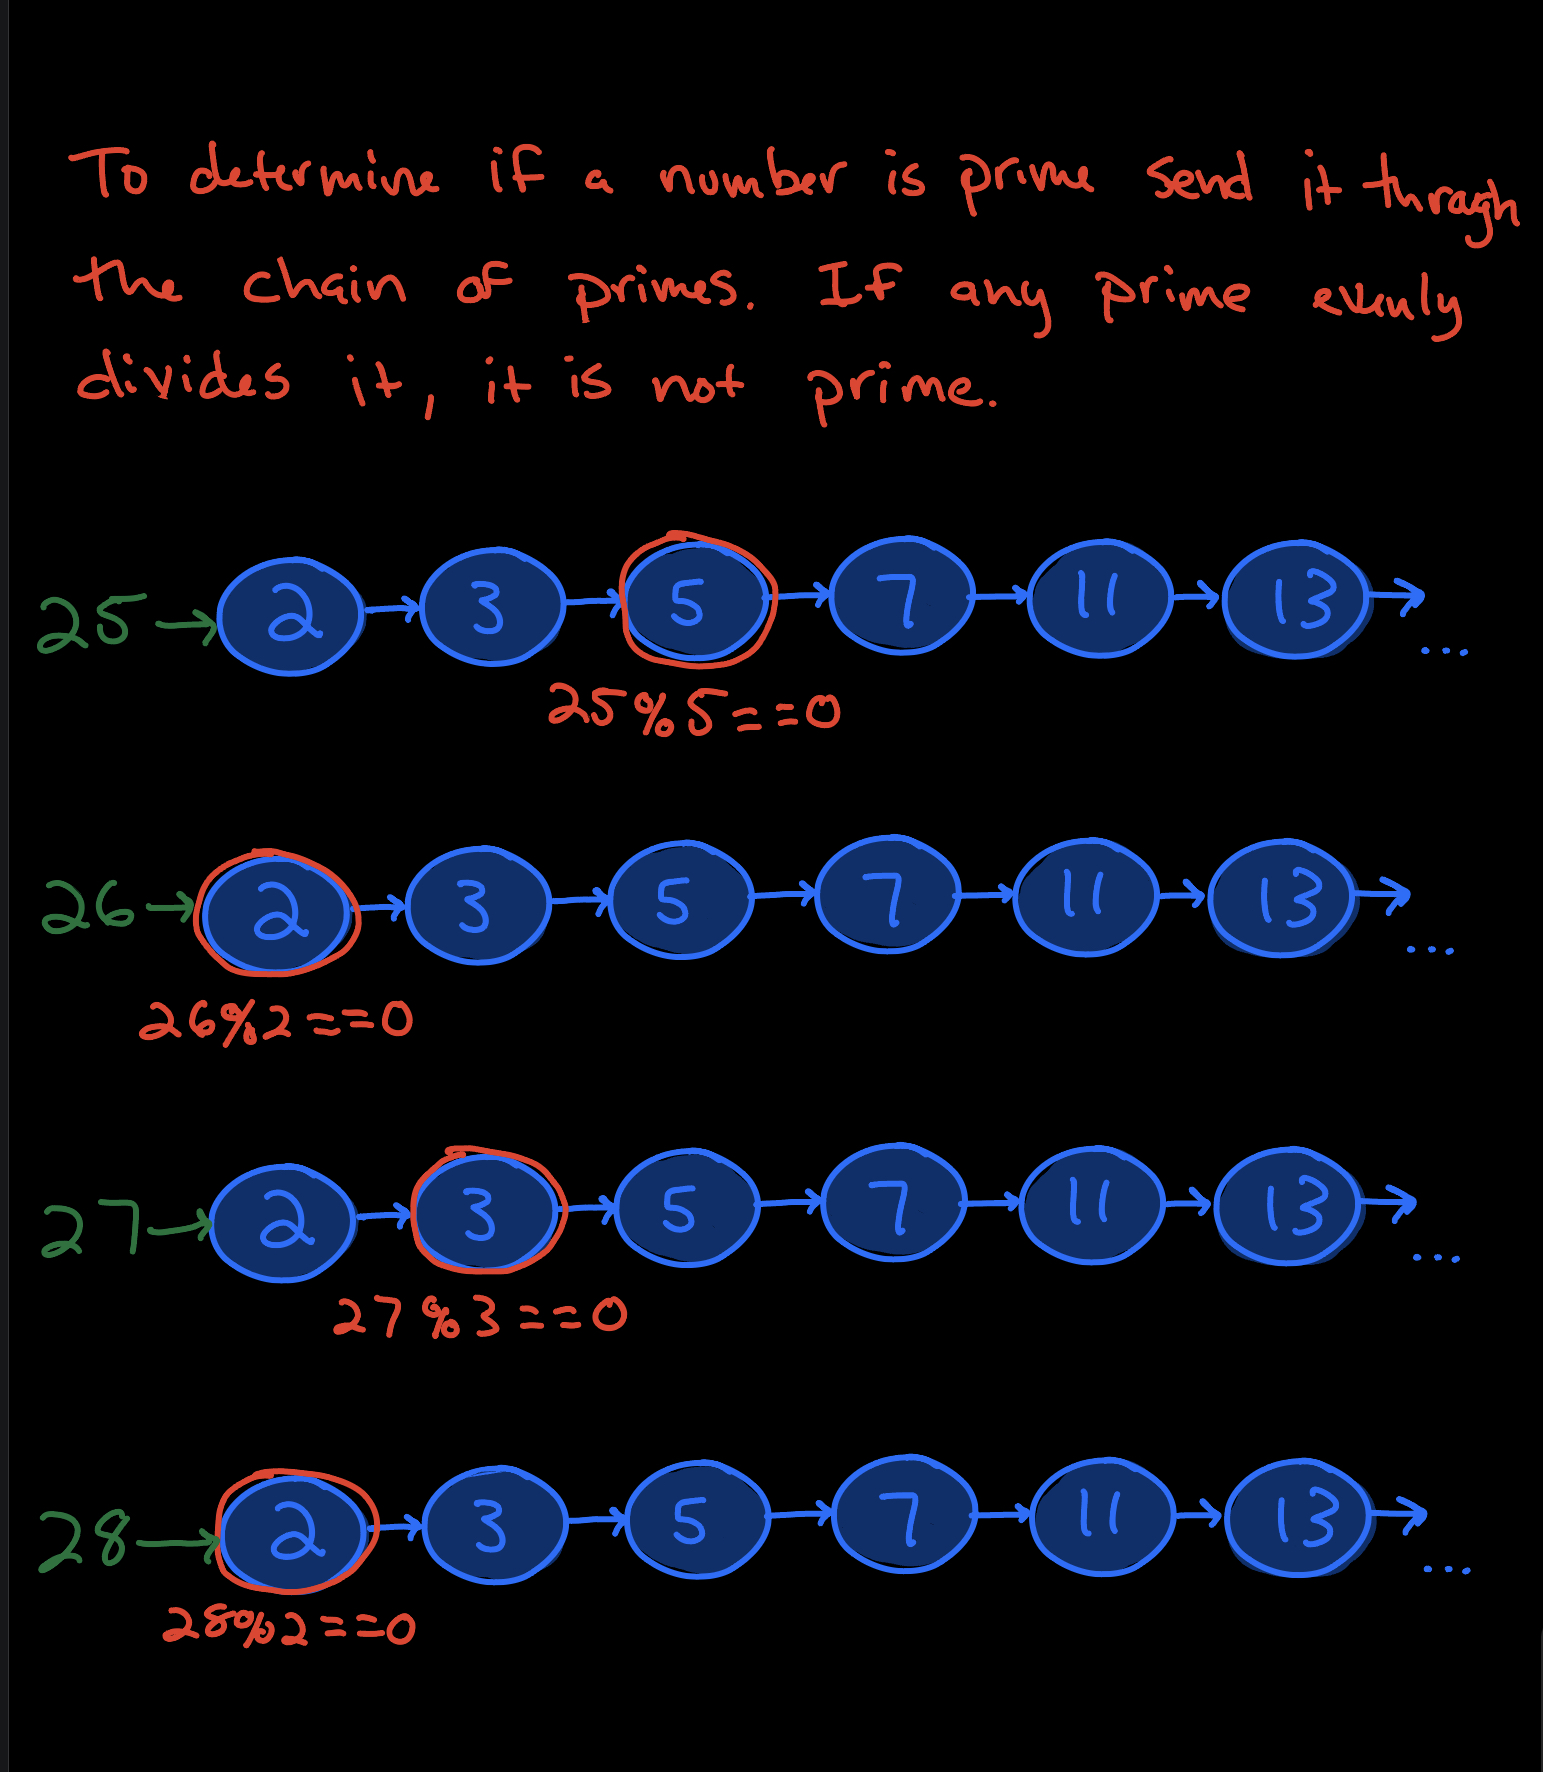 To determine if a number is prime send it through
the chain of primes. If any prime evenly
divides it, it is not prime.
25 2 3 5 7 11 13 ...
25%5==0
26 2 3 5 7 11 13 ...
26%2==0
27 2 3 5 7 11 13 ...
27%3==0
28 2 3 5 7 11 13 ...
28%2==0